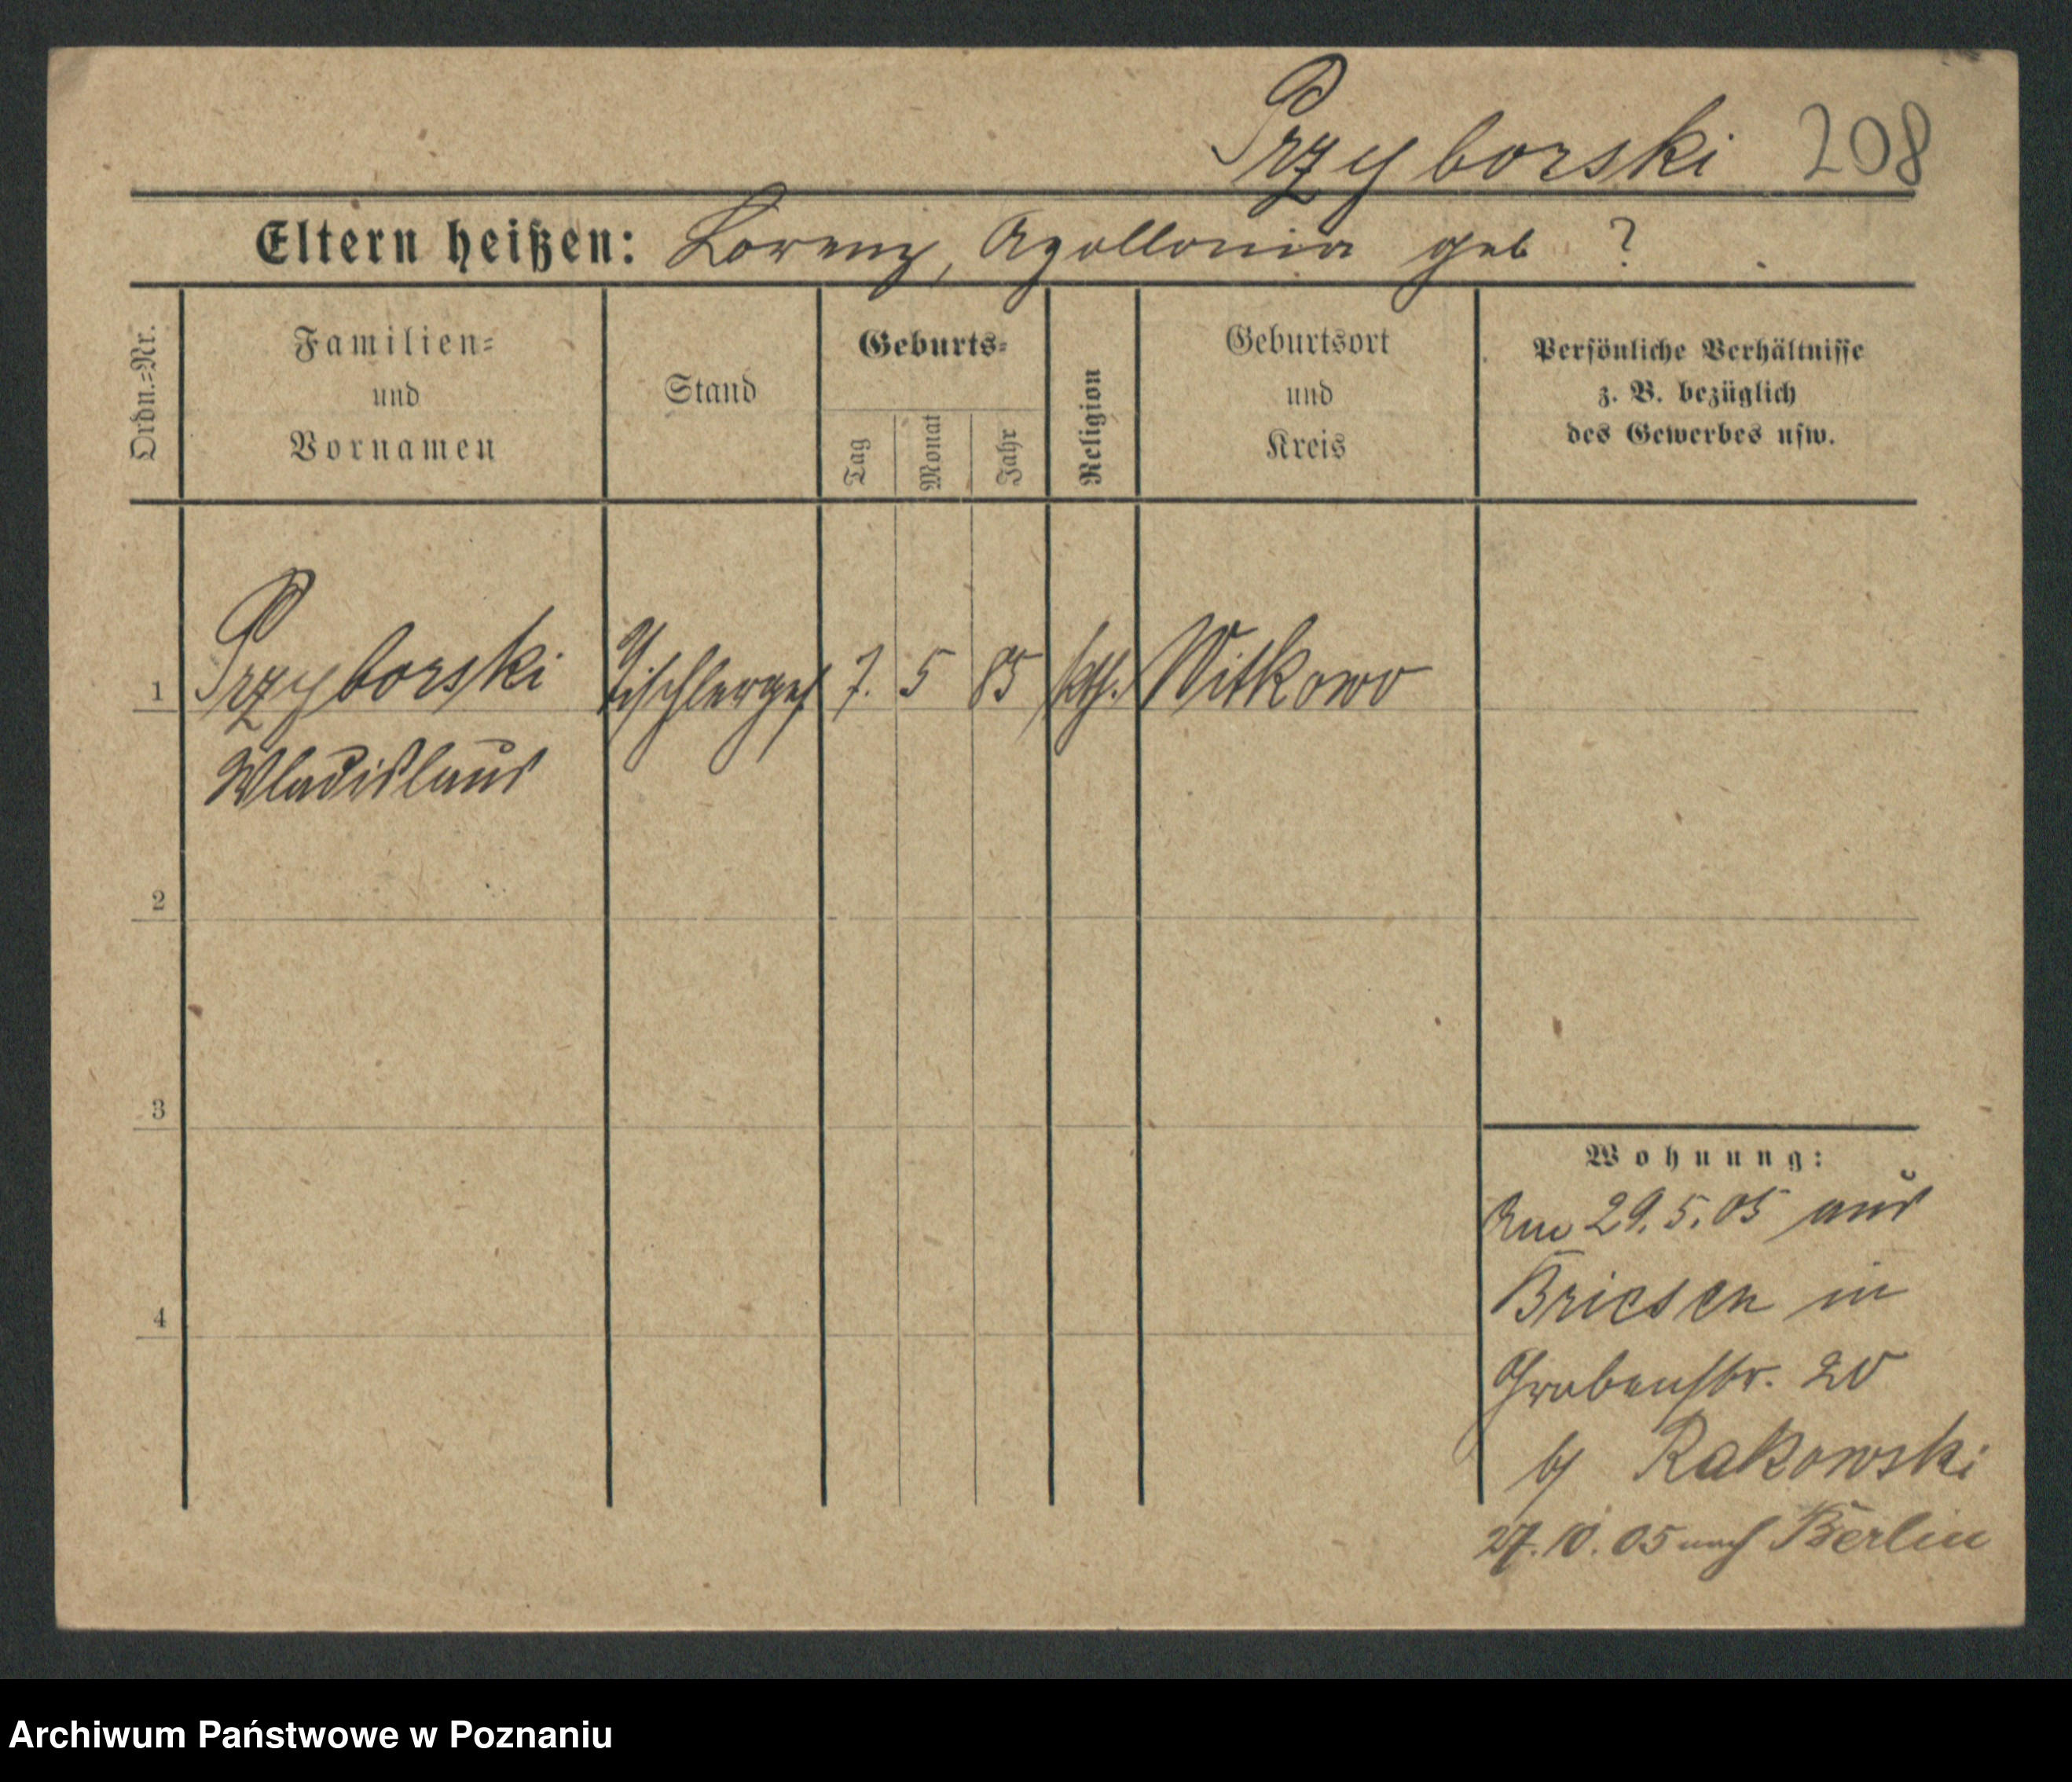 Przyborski 208
Eltern heißen: Lorenz, Apollonia geb ?
Ordn.=Nr.
Familien=
und
Vornamen
Stand
Geburts=
Tag
Monat
Jahr
Religion
Geburtsort
und
Kreis
Persönliche Verhältnisse
z. B. bezüglich
des Gewerbes usw.
1 Przyborski Tischlerges 7. 5 85 kth. Witkowo
Wladislaus
2
3
4
Wohnung:
Am 29.5.05 aus
Briesen in
Grabenstr. 20
bj Rakowski
27.10.05 nach Berlin
Archiwum Państwowe w Poznaniu